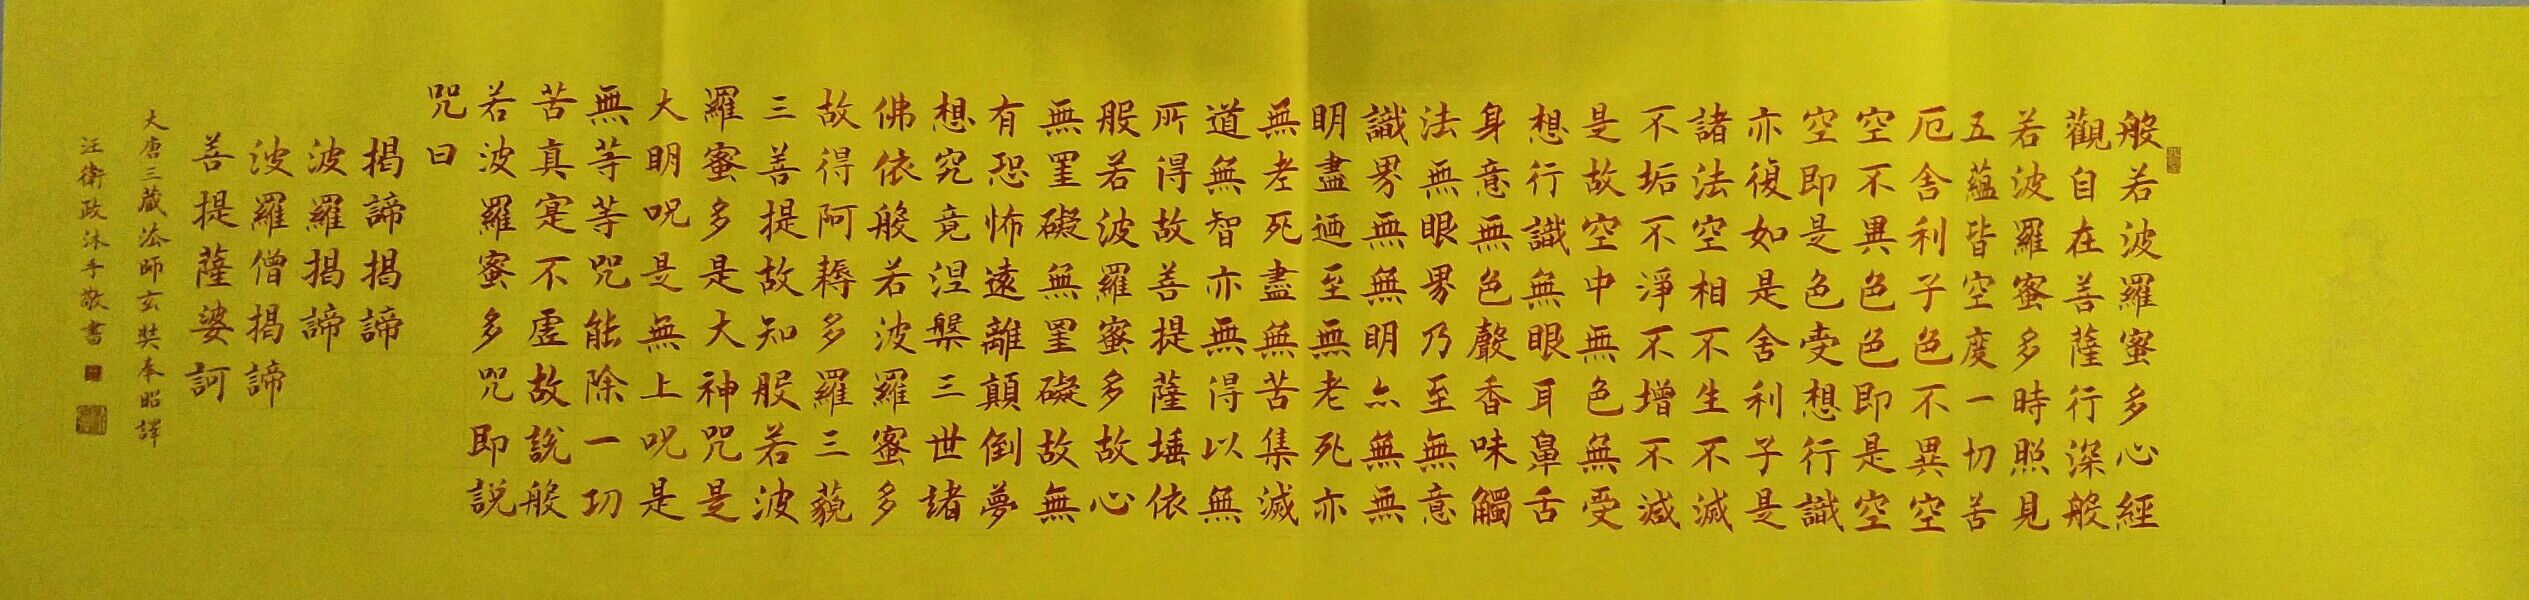 般若波羅蜜多心經
觀自在菩薩行深般
若波羅蜜多時照見
五蘊皆空度一切苦
厄舍利子色不異空
空不異色色即是空
空即是色受想行識
亦復如是舍利子是
諸法空相不生不滅
不垢不淨不增不減
是故空中無色無受
想行識無眼耳鼻舌
身意無色聲香味觸
法無眼界乃至無意
識界無無明亦無無
明盡迺至無老死亦
無老死盡無苦集滅
道無智亦無得以無
所得故菩提薩埵依
般若波羅蜜多故心
無罣礙無罣礙故無
有恐怖遠離顛倒夢
想究竟涅槃三世諸
佛依般若波羅蜜多
故得阿耨多羅三藐
三菩提故知般若波
羅蜜多是大神咒是
大明呪是無上呪是
無等等咒能除一切
苦真寔不虛故說般
若波羅蜜多咒即說
咒曰
揭諦揭諦
波羅揭諦
波羅僧揭諦
菩提薩婆訶
大唐三藏法師玄奘奉昭譯
汪衛政沐手敬書